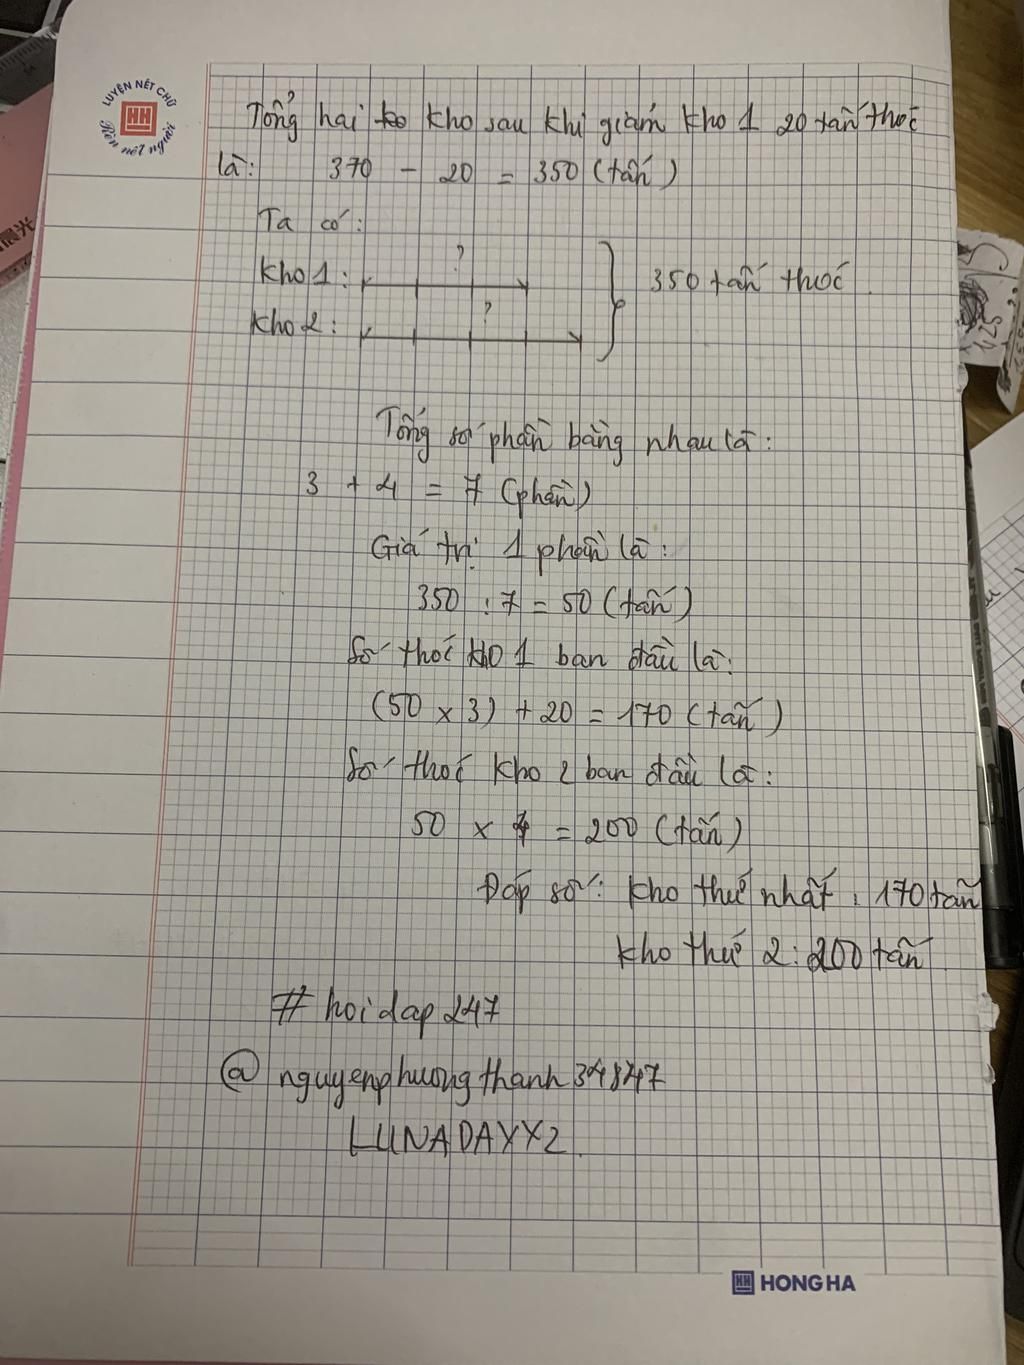 LUYỆN NÉT CHỮ
HH
Rèn nết người
Tổng hai kho sau khi giảm kho 1 20 tấn thóc
là: 370 - 20 = 350 (tấn)
Ta có:
?
Kho 1:
350 tấn thóc.
?
Kho 2:
Tổng số phần bằng nhau là:
3 + 4 = 7 (phần)
Giá trị 1 phần là:
350 : 7 = 50 (tấn)
Số thóc kho 1 ban đầu là:
(50 x 3) + 20 = 170 (tấn)
Số thóc kho 2 ban đầu là:
50 x 4 = 200 (tấn)
Đáp số: kho thứ nhất: 170 tấn
kho thứ 2: 200 tấn
# hoidap247
@ nguyenphuongthanh34847
LUNADAYY2.
HH HONG HA